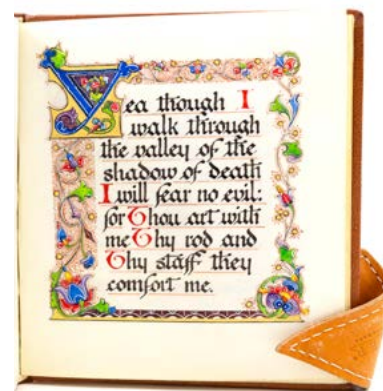 Yea though I
walk through
the valley of the
shadow of death
I will fear no evil:
for Thou art with
me Thy rod and
Thy staff they
comfort me.